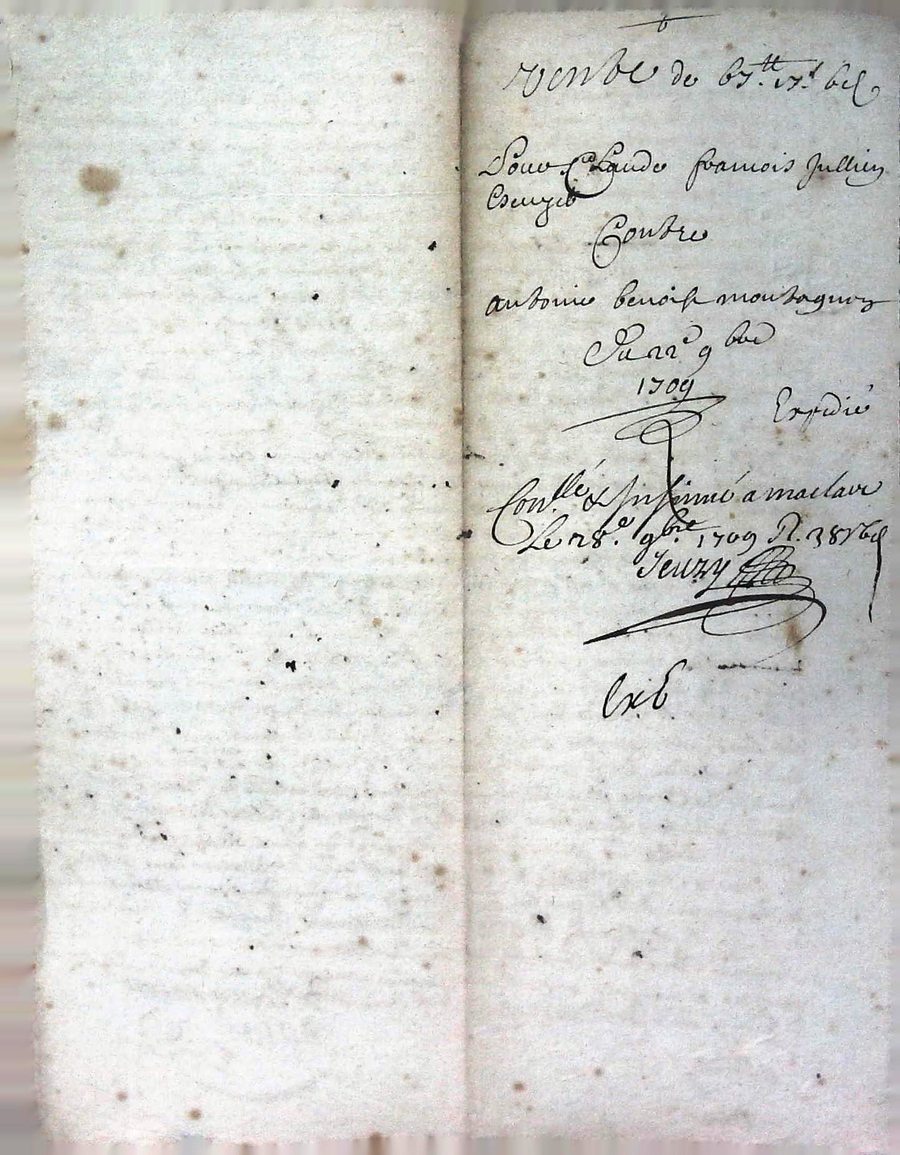 Vente de 67.tt 17.s 6d
Pour Claude francois Jullien
Contre
antoine benoist montagnon
Du 22e 9bre
1709
Expedié
Con.llé & Insinué a maclave
Le 28.e 9.bre 1709 R. 38s 6d